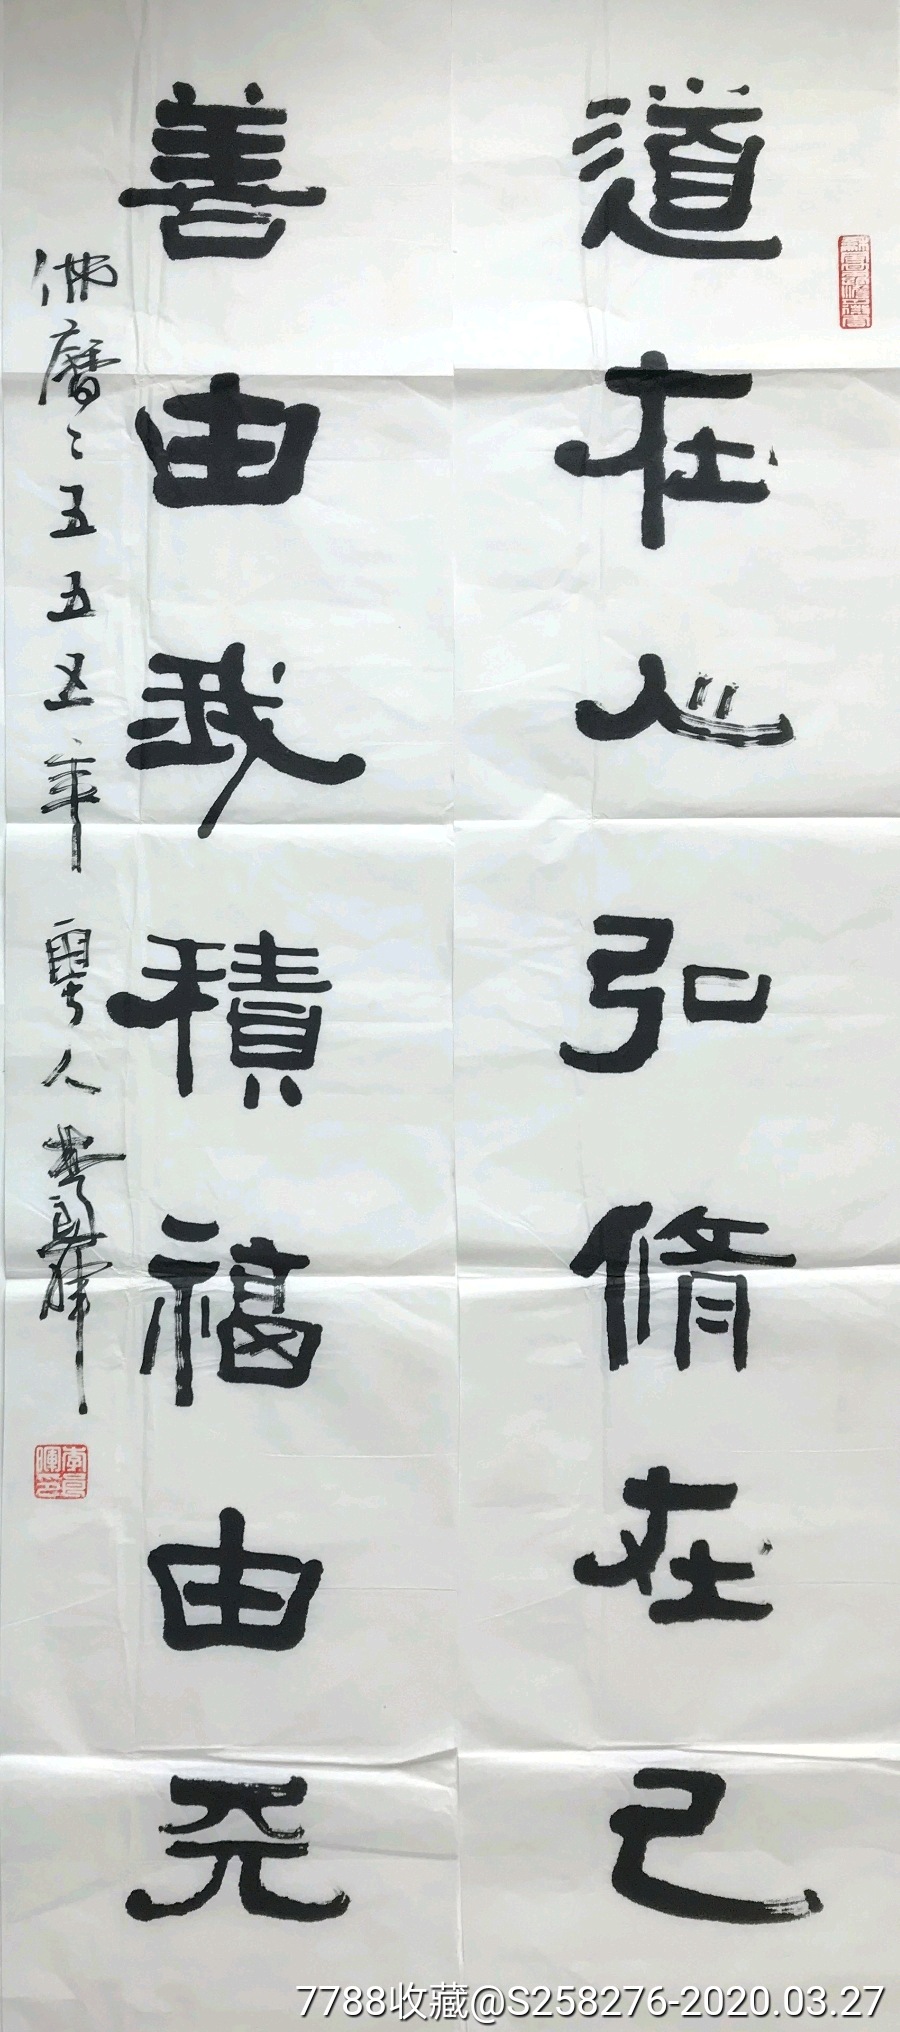 道在心弘脩在己
善由我積福由天
佛曆二五五五年 粵人李良暉
李良暉印
7788收藏@S258276-2020.03.27